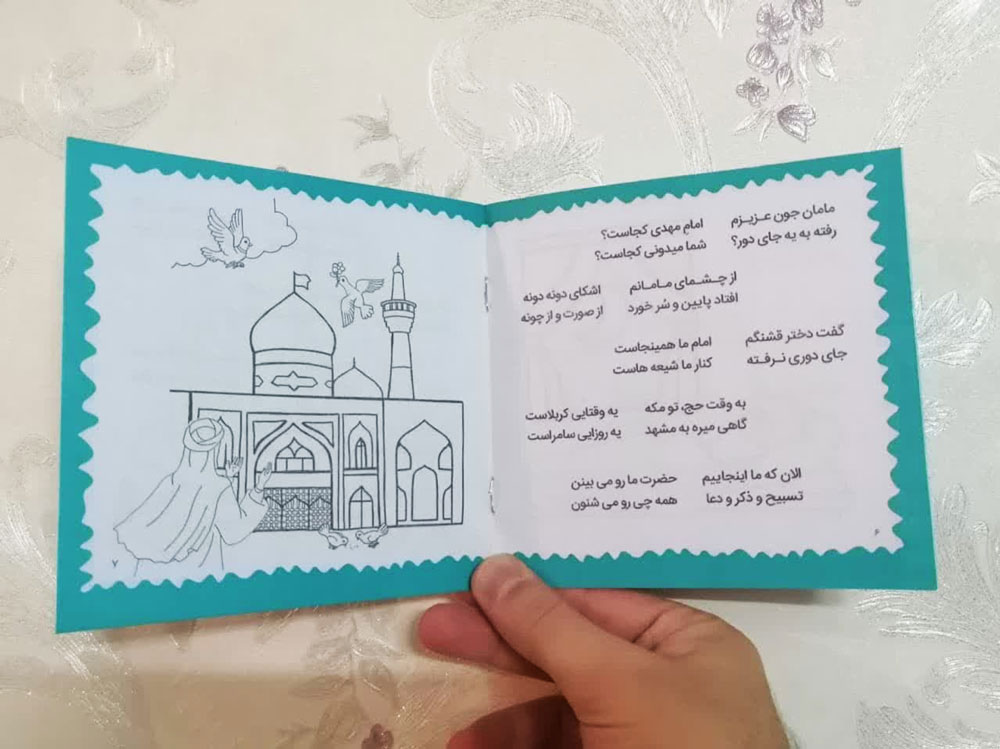 مامان جون عـزیـزم امام مهدی کجاست؟
رفته به یه جای دور؟ شما میدونی کجاست؟
از چـشـمای مـامـانم اشکای دونه دونه
افتاد پایین و سُر خورد از صورت و از چونه
گفت دختر قشنگم امام ما همینجاست
جای دوری نـرفـته کنار ما شیعه هاست
به وقت حج، تو مکه یه وقتایی کربلاست
گاهی میره به مشهد یه روزایی سامراست
الان که ما اینجاییم حضرت ما رو می بینن
تسبیح و ذکر و دعا همه چی رو می شنون
۶
۷